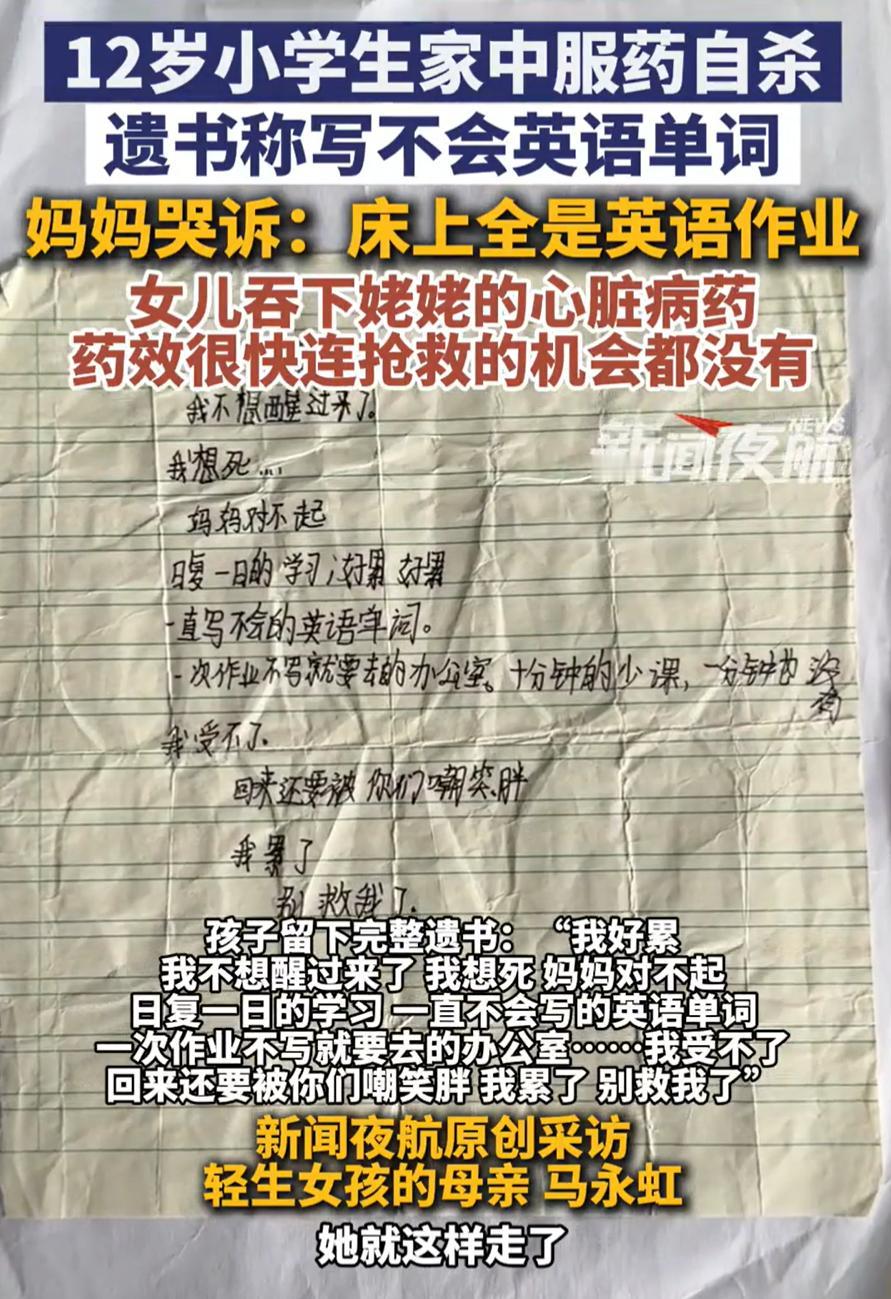 12岁小学生家中服药自杀
遗书称写不会英语单词
妈妈哭诉：床上全是英语作业
女儿吞下姥姥的心脏病药
药效很快连抢救的机会都没有
我不想醒过来了。
NEWS
新闻夜航
我想死...
妈妈对不起
日复一日的学习，好累 好累
一直写不会的英语单词。
一次作业不写就要去的办公室。十分钟的少课，一分钟也没有
我受不了
回来还要被你们嘲笑胖
我累了
别救我了.
孩子留下完整遗书：“我好累
我不想醒过来了 我想死 妈妈对不起
日复一日的学习 一直不会写的英语单词
一次作业不写就要去的办公室……我受不了
回来还要被你们嘲笑胖 我累了 别救我了”
新闻夜航原创采访
轻生女孩的母亲 马永虹
她就这样走了